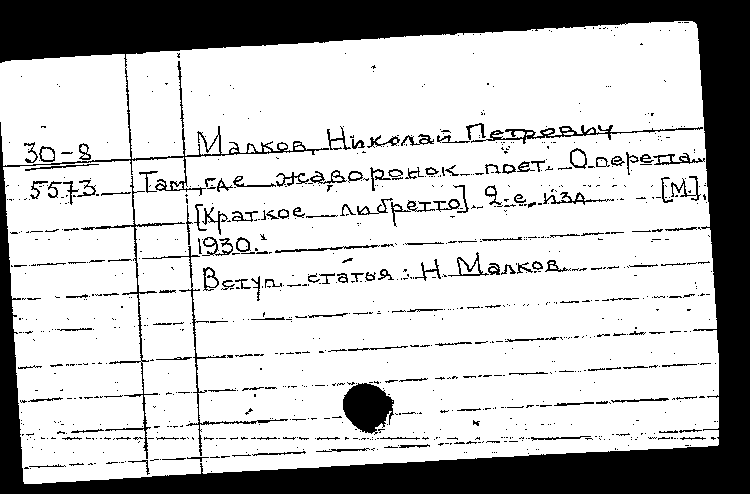 30-8
5573
Малков, Николай Петрович
Там, где жаворонок поет. Оперетта.
[Краткое либретто]. 2-е изд. [М.],
1930.
Вступ. статья: Н. Малков.